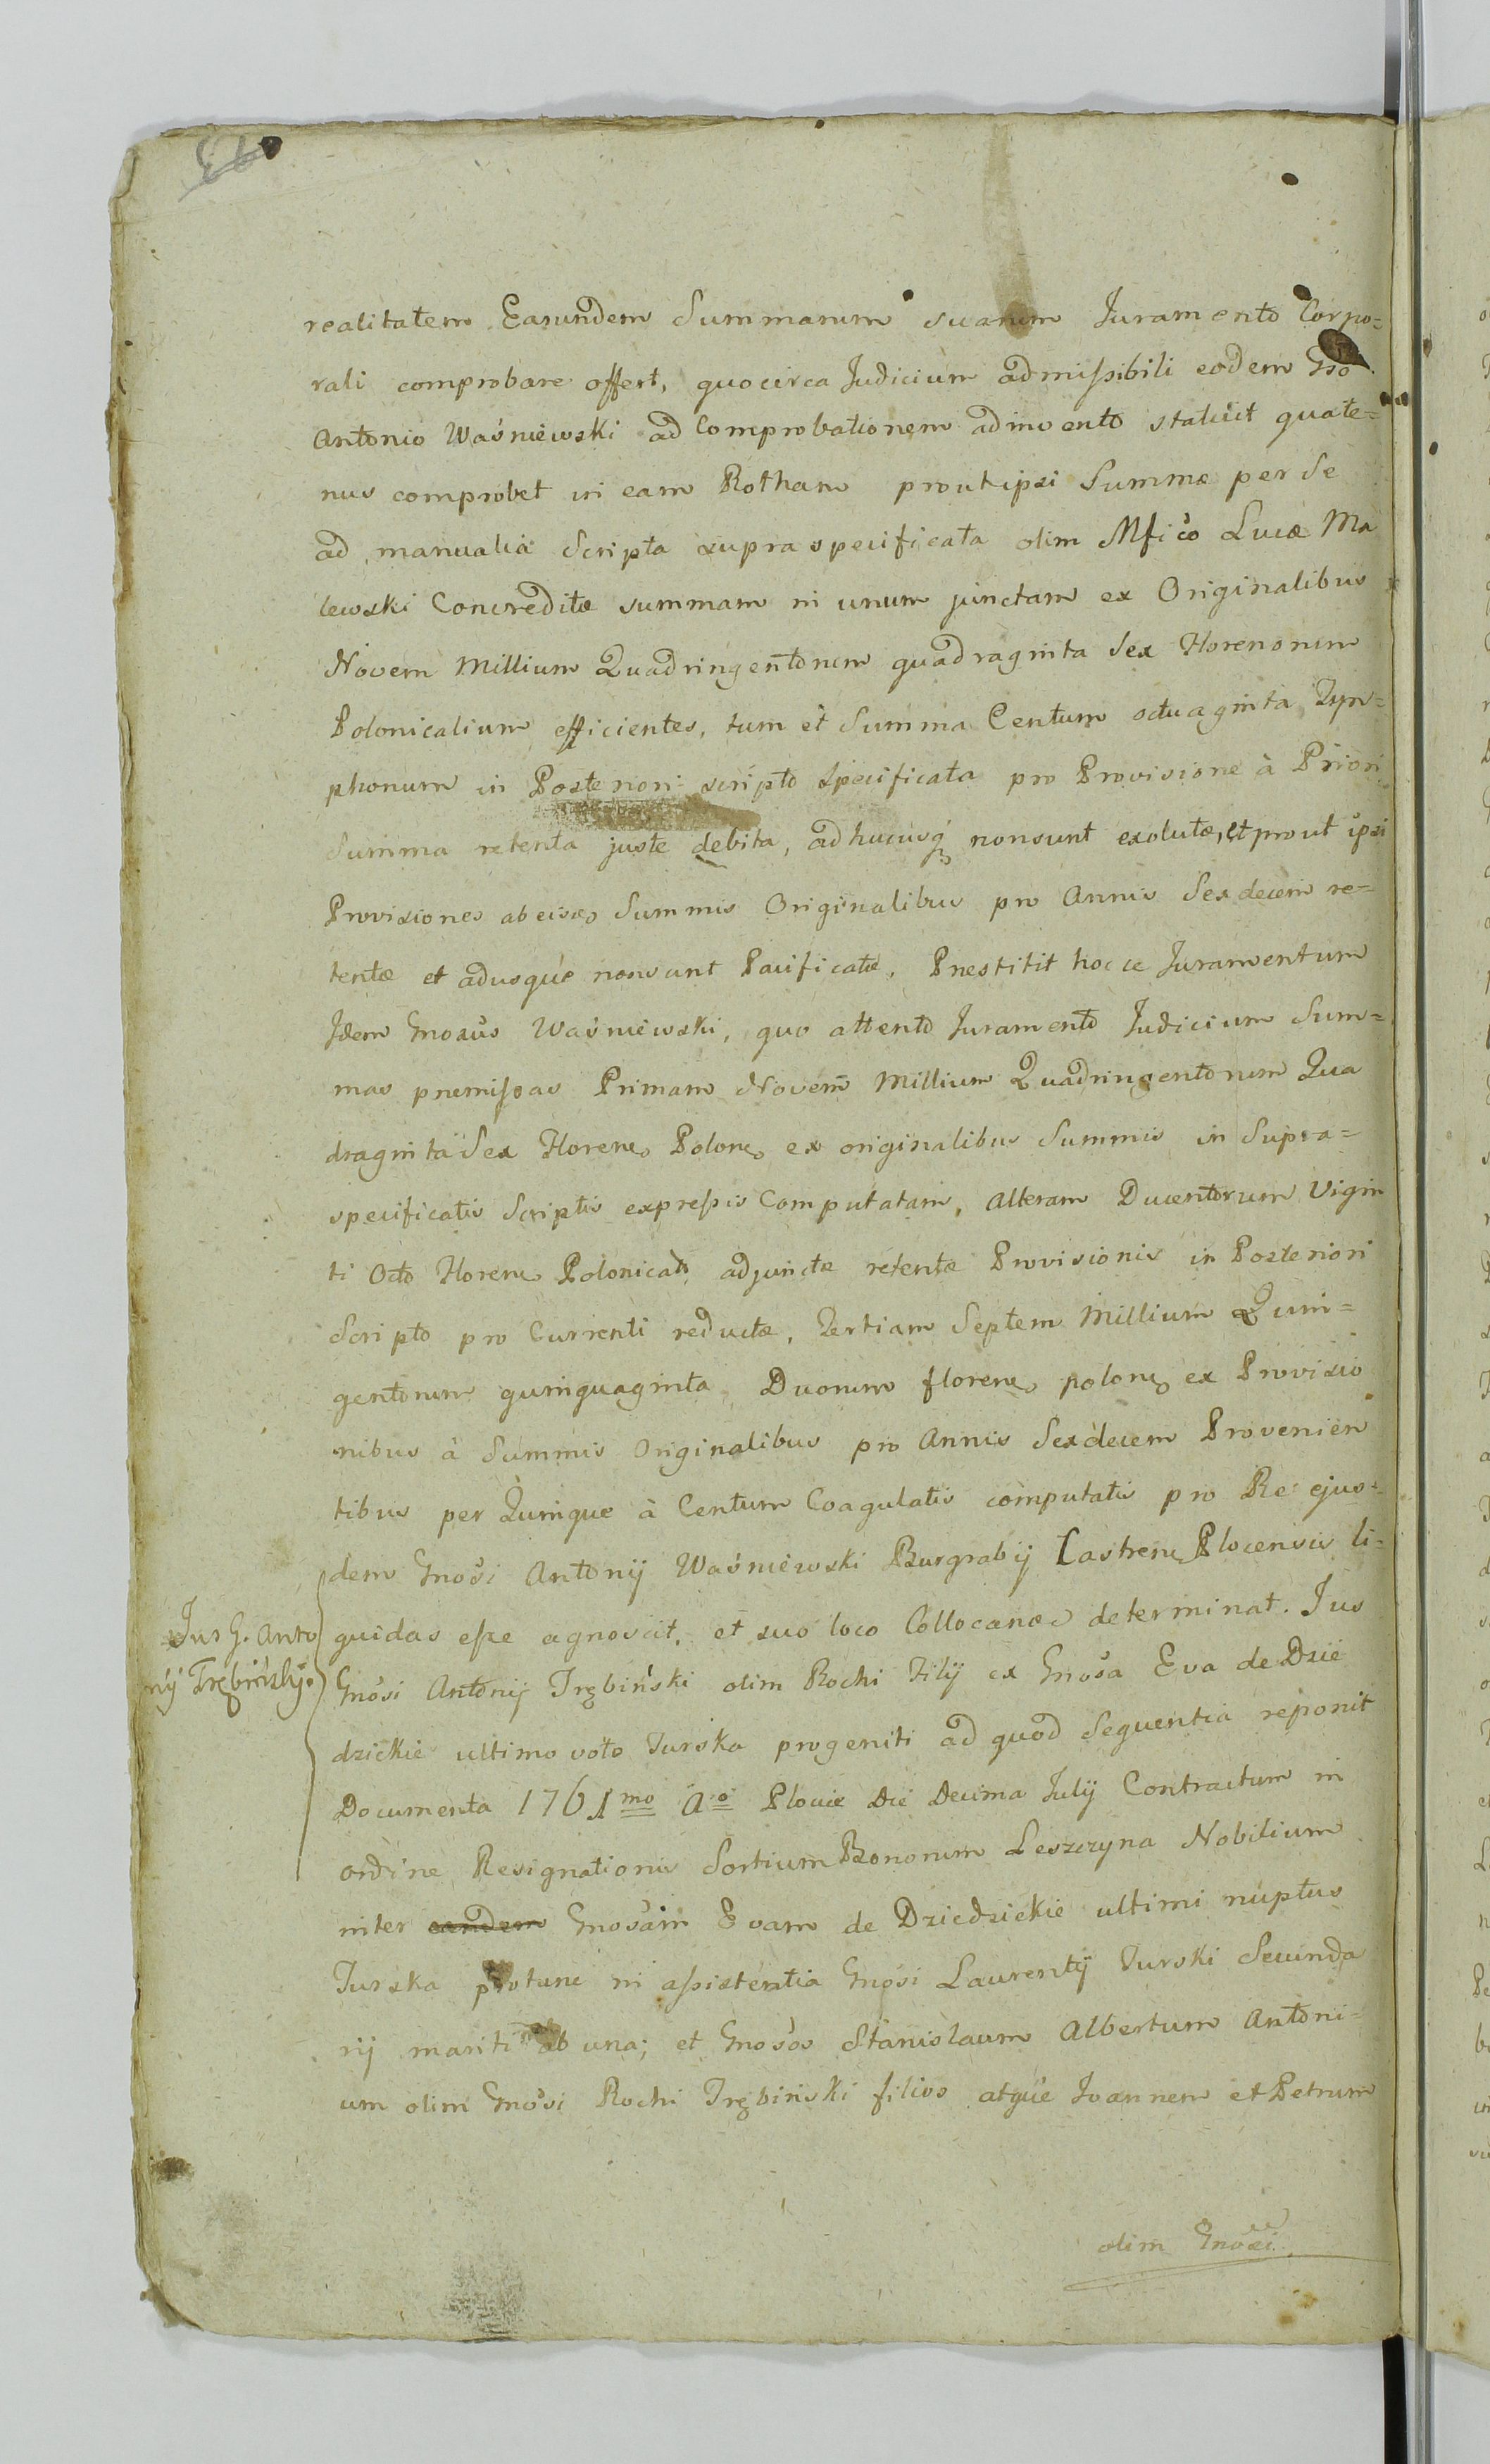 realitatem Earundem Summarum suarum Juramento Corpo=
rali comprobare offert, quocirca Judicium admissibili eodem Gso
Antonio Waśniewski ad Comprobationem adinvento statuit quate=
nus comprobet in eam Rotham prout ipsi Summæ per Se
ad manualia Scripta supra specificata olim Mfico Lucæ Ma
lewski Concreditæ summam in unum junctam ex Originalibus
Novem Millium Quadringentorum quadraginta Sex Florenorum
Polonicalium efficientes, tum et Summa Centum octuaginta Tyn=
phonum in Posteriori scripto specificata pro Provisione à Priori
Summa retenta juste debita, adhucusq̨ nonsunt exolutæ, et prout ipsi
Provisiones ab eisdem Summis Originalibus pro Annis Sexdecem re=
tentæ et adusque nonsunt Pacificatæ, Præstitit hocce Juramentum
Idem Gnosus Waśniewski, quo attento Juramento Judicium Sum=
mas præmissas Primam Novem Millium Quadringentorum Qua
draginta Sex Floren Polon ex originalibus Summis in Supra=
specificatis Scriptis expressis Computatam, Alteram Ducentorum Vigin
ti Octo Floren Polonical adjunctæ retentæ Provisionis in Posteriori
Scripto pro Currenti reductæ, Tertiam Septem Millium Quin=
gentorum quinquaginta Duorum floren polon ex Provisio
nibus à Summis Originalibus pro Annis Sexdecem Provenien
tibus per Quinque à Centum Coagulatis computatis pro Re ejus=
dem Gnosi Antonij Waśniewski Burgrabij Castren Plocensis li=
quidas esse agnoscit, et suo loco Collocandas determinat. Jus
Jus G. Anto
nij Trębiński
Gnosi Antonij Trębiński olim Rochi Filij ex Gnosa Eva de Dzie
dzickie ultimo voto Turska progeniti ad quod sequentia reponit
Documenta 1761mo Ao Plociæ Die Decima Julij Contractum in
ordine Resignationis Sortium Bonorum Leszczyna Nobilium
inter eandem Gnosam Evam de Dziedzickie ultimi nuptus
Turska protunc in assistentia Gnosi Laurentij Turski Secunda
rij mariti ab una; et Gnosos Stanislaum Albertum Antoni=
um olim Gnosi Rochi Trębiński filios atque Joannem et Petrum
olim Gnosi